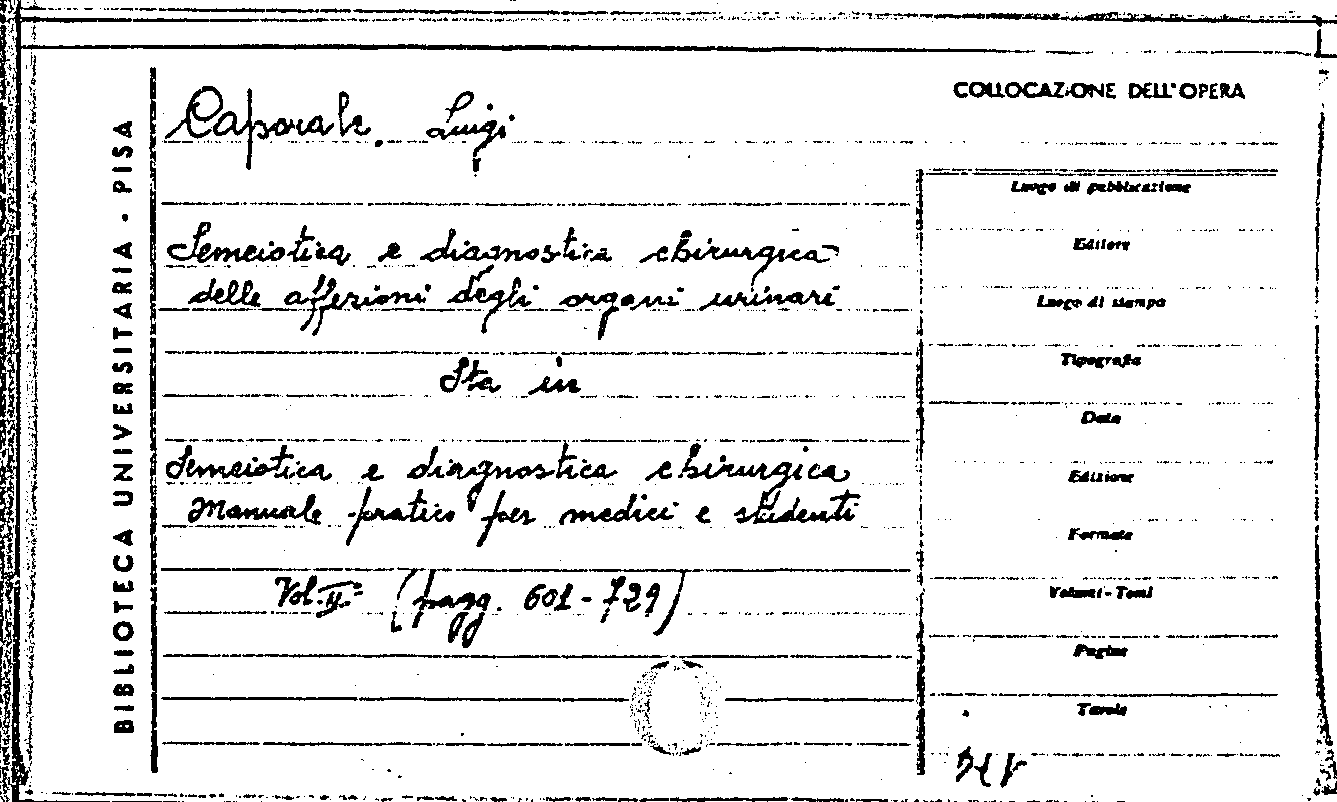 BIBLIOTECA UNIVERSITARIA - PISA
Caporale, Luigi
Semeiotica e diagnostica chirurgica
delle affezioni degli organi urinari
Sta in
Semeiotica e diagnostica chirurgica
Manuale pratico per medici e studenti
Vol. II.° (pagg. 601-729)
COLLOCAZIONE DELL'OPERA
Luogo di pubblicazione
Editore
Luogo di stampa
Tipografia
Data
Edizione
Formato
Volumi-Tomi
Pagine
Tavole